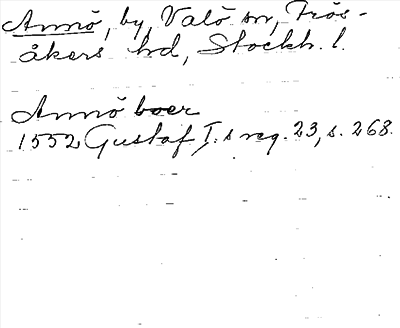 Annö, by, Valö sn, Frös-
åkers hd, Stockh. l.
Annö boer
1552 Gustaf I.s reg. 23, s. 268.